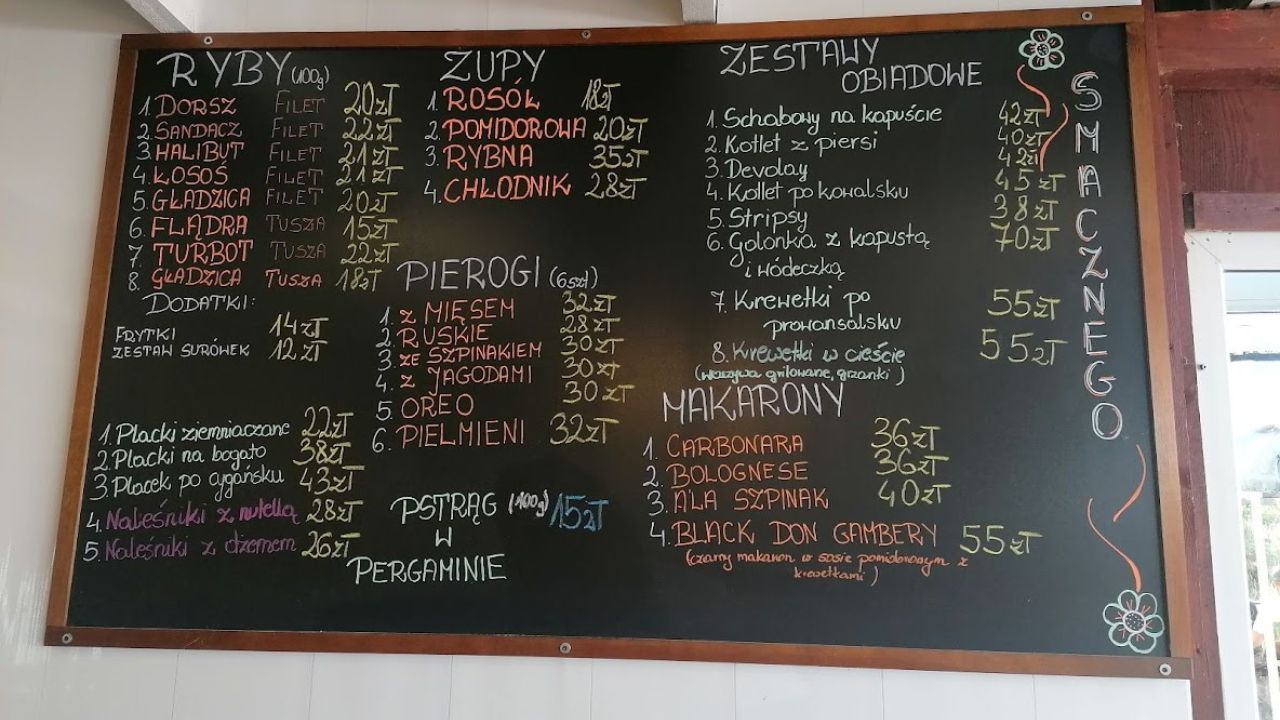 RYBY (100g)
1. DORSZ FILET 20zł
2. SANDACZ FILET 22zł
3. HALIBUT FILET 21zł
4. ŁOSOŚ FILET 21zł
5. GŁADZICA FILET 20zł
6. FLĄDRA TUSZA 15zł
7. TURBOT TUSZA 22zł
8. GŁADZICA TUSZA 18zł
DODATKI:
FRYTKI 14zł
ZESTAW SURÓWEK 12zł
1. Placki ziemniaczane 22zł
2. Placki na bogato 38zł
3. Placek po cygańsku 43zł
4. Naleśniki z nutellą 28zł
5. Naleśniki z dżemem 26zł
ZUPY
1. ROSÓŁ 18zł
2. POMIDOROWA 20zł
3. RYBNA 35zł
4. CHŁODNIK 28zł
PIEROGI (6szt)
1. Z MIĘSEM 32zł
2. RUSKIE 28zł
3. ZE SZPINAKIEM 30zł
4. Z JAGODAMI 30zł
5. OREO 30zł
6. PIELMIENI 32zł
PSTRĄG (100g) 15zł
W
PERGAMINIE
ZESTAWY
OBIADOWE
1. Schabowy na kapuście 42zł
2. Kotlet z piersi 40zł
3. Devolay 42zł
4. Kotlet po kowalsku 45zł
5. Stripsy 38zł
6. Golonka z kapustą 70zł
i wódeczką
7. Krewetki po 55zł
prowansalsku
8. Krewetki w cieście 55zł
(warzywa grilowane, grzanki)
MAKARONY
1. CARBONARA 36zł
2. BOLOGNESE 36zł
3. ALA SZPINAK 40zł
4. BLACK DON GAMBERY 55zł
(czarny makaron w sosie pomidorowym z
krewetkami)
SMACZNEGO